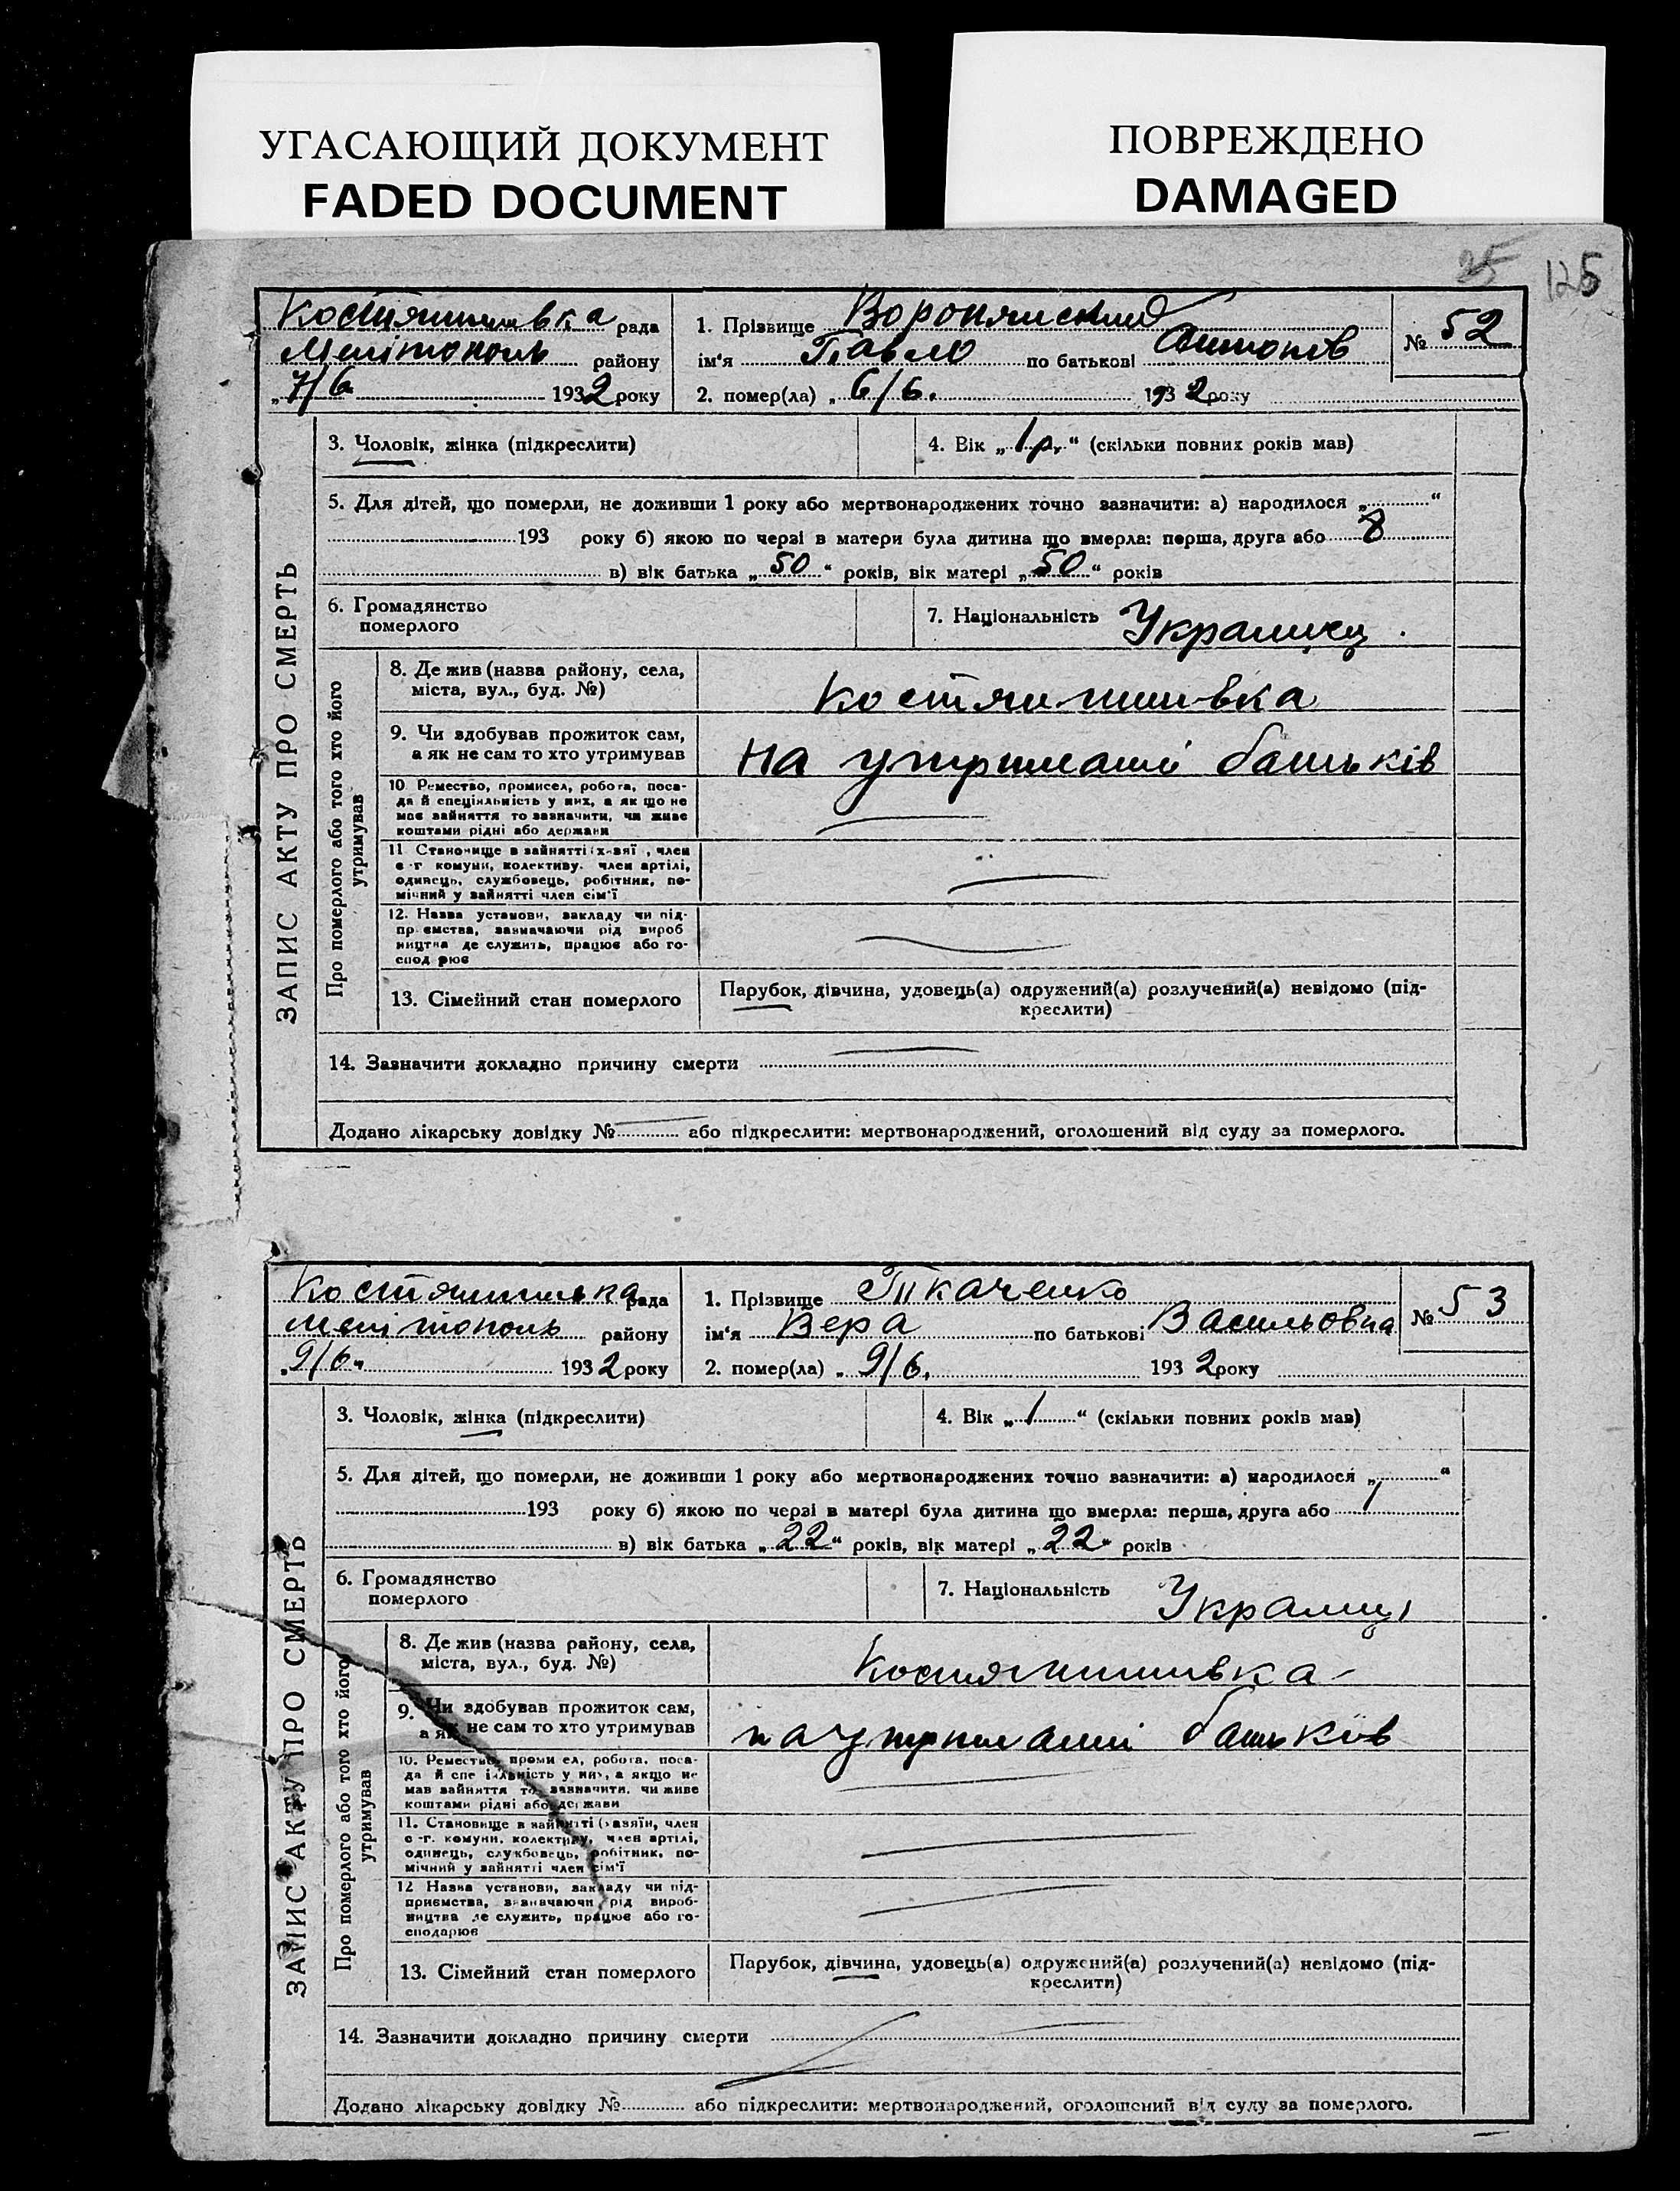 УГАСАЮЩИЙ ДОКУМЕНТ
FADED DOCUMENT
ПОВРЕЖДЕНО
DAMAGED
25 125
Костянтинівка рада
Мелітополь району
„7/6 1932 року
1. Прізвище
ім'я Павло по батькові Антонов
2. помер(ла) „6/6. 1932 року
№ 52
ЗАПИС АКТУ ПРО СМЕРТЬ
3. Чоловік, жінка (підкреслити)
4. Вік „1 р.“ (скільки повних років мав)
5. Для дітей, що померли, не доживши 1 року або мертвонароджених точно зазначити: а) народилося „ “
193 року б) якою по черзі в матери була дитина що вмерла: перша, друга або 8
в) вік батька „50“ років, вік матері „50“ років
6. Громадянство
померлого
7. Національність Украинец.
Про померлого або того хто його
утримував
8. Де жив (назва району, села,
міста, вул., буд. №)
Костянтинівка
9. Чи здобував прожиток сам,
а як не сам то хто утримував
на утриманні батьків
10 Ремество, промисел, робота, поса-
да й спеціяльність у них, а як що не
має зайняття то зазначити, чи живе
коштами рідні або держави
11 Становище в зайнятті (х-зяї , член
с -г комуни, колективу, член артілі,
одинець, службовець, робітник, по-
мічний у зайнятті член сім'ї
12. Назва установи, закладу чи під-
пр ємства, зазначаючи рід вироб
ництва де служить, працює або го-
спод рює
13. Сімейний стан померлого
Парубок, дівчина, удовець(а) одружений(а) розлучений(а) невідомо (під-
креслити)
14. Зазначити докладно причину смерти
Додано лікарську довідку № або підкреслити: мертвонароджений, оголошений від суду за померлого.
Костянтинівка рада
Мелітополь району
„9/6 1932 року
1. Прізвище Ткаченко
ім'я Вера по батькові Васильовна
2. помер(ла) „9/6. 1932 року
№ 53
ЗАПИС АКТУ ПРО СМЕРТЬ
3. Чоловік, жінка (підкреслити)
4. Вік „1“ (скільки повних років мав)
5. Для дітей, що померли, не доживши 1 року або мертвонароджених точно зазначити: а) народилося „ “
193 року б) якою по черзі в матері була дитина що вмерла: перша, друга або 1
в) вік батька „22“ років, вік матері „22“ років
6. Громадянство
померлого
7. Національність
Про померлого або того хто його
утримував
8. Де жив (назва району, села,
міста, вул., буд. №)
Костянтинівка
9. Чи здобував прожиток сам,
а як не сам то хто утримував
на утриманні батьків
10. Ремество, проми ел, робота, поса-
да й спе іяльність у них, а якщо не
має зайняття то зазначити, чи живе
коштами рідні або держави
11. Становище в зайнятті (хазяїн, член
с -г. комуни, колективу, член артілі,
одинець, службовець, робітник, по-
мічний у зайнятті член сім'ї
12 Назва установи, закладу чи під-
приємства, зазначаючи рід вироб-
ництва де служить, працює або го-
сподарює
13. Сімейний стан померлого
Парубок, дівчина, удовець(а) одружений(а) розлучений(а) невідомо (під-
креслити)
14. Зазначити докладно причину смерти
Додано лікарську довідку № або підкреслити: мертвонароджений, оголошений від суду за померлого.